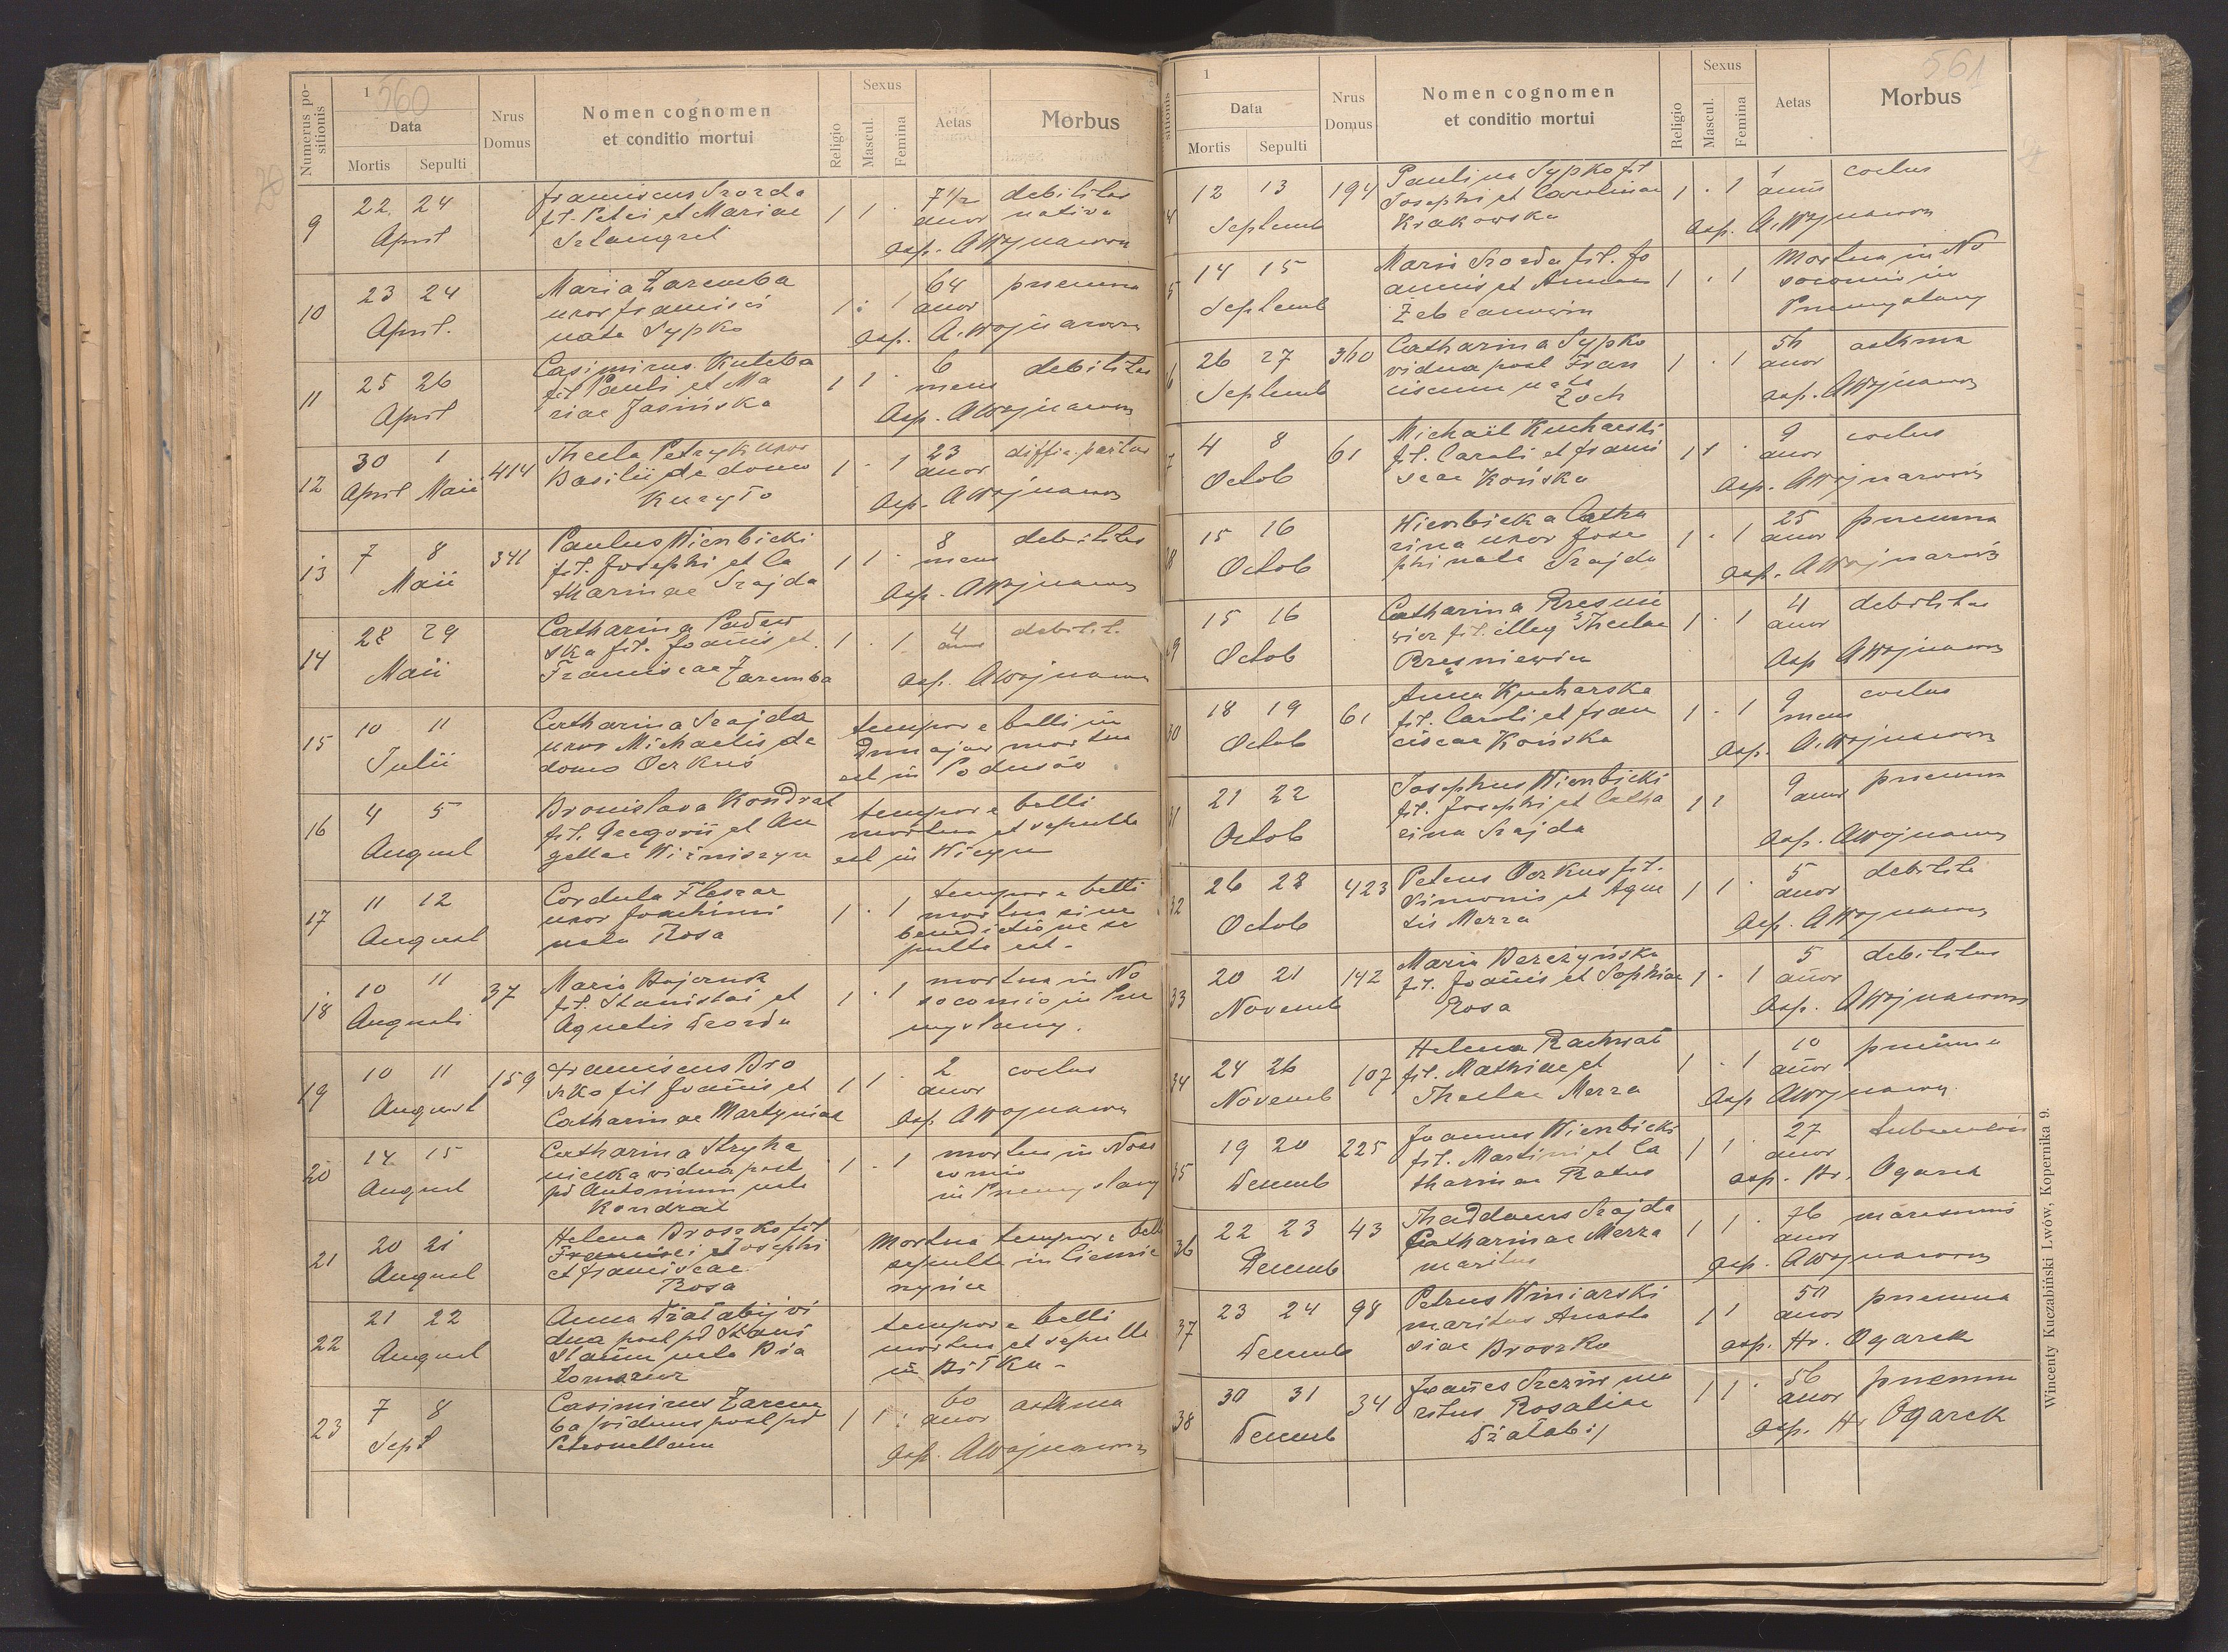 560
Numerus positionis
1
Data
Mortis Sepulti
Nrus Domus
Nomen cognomen
et conditio mortui
Religio
Sexus
Mascul. Femina
Aetas
Morbus
9 22 24 April
Franciscus Szorda
fil. Petri et Mariae
1 1 · 7 1/2 anor debilitas nativa
asp. AWojnarowicz
10 23 24 April.
Maria Zaremba
uxor Francisci
nata Sypko
1 · 1 64 anor pneumna
asp. A. Wojnarowicz
11 25 26 April
Casimirus Kuteba
fil Pauli et Ma
riae Jasińska
1 1 · 6 mens debilitas
Asp. AWojnarowicz
12 30 April 1 Maii 414
Thecla Petryk uxor
Basilii de domo
Kuryło
1 · 1 23 anor diffic. partus
Asp. AWojnarowicz
13 7 8 Maii 341
Paulus Wierzbicki
fil. Josephi et Ca
tharinae Szajda
1 1 · 8 mens debilitas
Asp. AWojnarowicz
14 28 29 Maii
Catharina Padew
ska fil. Joanis et
Franciscae Zaremba
1 · 1 4 debilit.
asp. AWojnarowicz
15 10 11 Julii
Catharina Szajda
uxor Michaelis de
domo Oerkuś
tempore belli in
mortua
est in
16 4 5 August
Bronislava Kondrat
fil. Gregorii et An
gellae Wiśniszyn
tempore belli
mortua et sepulta
est in Wicyn
17 11 12 August
Cordula Fleszar
uxor Joachimi
nata Rosa
1 · 1 tempore belli
mortua sine
benedictione se
pulta est -
18 10 11 Augusti 37
Maria
fil. Stanislai et
Agnetis Szorda
1 · 1 mortua in No
socomio in Prze
myslany.
19 10 11 August 159
Franciscus Bro
szko fil Joanis et
Catharinae Martyniak
1 1 · 2 anor coctus
Asp. AWojnarowicz
20 14 15 August
Catharina Stryha
nicka vidua post
pd Antonium nata
Kondrat
1 · 1 mortua in Noso
comio
in Przemyslany
21 20 21 August
Helena Broszko fil
Francisci Josephi
et Franciscae
Rosa
Mortua tempore belli
sepulta in Ciemie
rzyńce
22 21 22 August
Anna Działabij vi
dua post pd Stani
slaum nata Bia
łomazur
tempore belli
mortua et sepulta
in Biłka -
23 7 8 Sept
Casimirus Zarem
ba viduus post pd
Petronellam
1 1 : 60 anor asthma
Asp. AWojnarowicz
561
sitionis
1
Data
Mortis Sepulti
Nrus Domus
Nomen cognomen
et conditio mortui
Religio
Sexus
Mascul. Femina
Aetas
Morbus
4 12 13 Septemb 194
Paulina Sypko fil
Josephi et Carolinae
Krakowska
1 · 1 1 coctus
asp. A. Wojnarowicz
5 14 15 Septemb
Maria Szorda fil. Jo
annis et Annae
1 · 1 Mortua in No
socomio in
Przemyslany
6 26 27 Septemb 360
Catharina Sypko
vidua post Fran
ciscum nata
Zoch
1 · 1 54 anor asthma
asp. AWojnarowicz
7 4 8 Octob 61
Michaël Kucharski
fil. Caroli et Franci
scae Końska
1 1 · 9 anor coctus
Asp. AWojnarowicz
8 15 16 Octob
Wierzbicka Catha
rina uxor Jose
phi nata Szajda
1 · 1 25 anor pneumna
asp. AWojnarowicz
9 15 16 Octob
Catharina Przesnie
wicz fil. illeg Theclae
Przesniewicz
1 · 1 4 anor debilitas
Asp AWojnarowicz
30 18 19 Octob 61
Anna Kucharska
fil. Caroli et Fran
ciscae Końska
1 · 1 9 mens coctus
Asp. A. Wojnarowicz
31 21 22 Octob
Josephus Wierzbicki
fil. Josephi et Catha
rina Szajda
1 1 9 anor pneumna
Asp. AWojnarowicz
32 26 28 Octob 423
Petrus Oerkus fil.
Simonis et Agne
tis Merza
1 1 · 5 anor debilita
Asp. AWojnarowicz
33 20 21 Novemb 142
Maria Bereżyńska
fil. Joanis et Sophiae
Rosa
1 · 1 5 anor debilitas
Asp. AWojnarowicz
34 24 26 Novemb 107
Helena Rachwał
fil. Mathiae et
Theclae Merza
1 · 1 10 anor pneumna
Asp AWojnarowicz
35 19 20 Decemb 225
Joannes Wierzbicki
fil. Martini et Ca
tharinae Ratus
1 1 · 27 anor tuberculosis
asp. Hr. Ogarek
36 22 23 Decemb 43
Thaddaeus Szajda
Catharinae Merza
maritus
1 1 · 76 anor marasmus
asp. AWojnarowicz
37 23 24 Decemb 98
Petrus Winiarski
maritus Anasta
siae Broszko
1 1 50 anor pneumna
asp. Hr. Ogarek
38 30 31 Decemb 34
Joanes ma
ritus Rosaliae
Działabij
1 1 · 56 anor pneumna
asp. Hr Ogarek
Wincenty Kuczabiński Lwów, Kopernika 9.